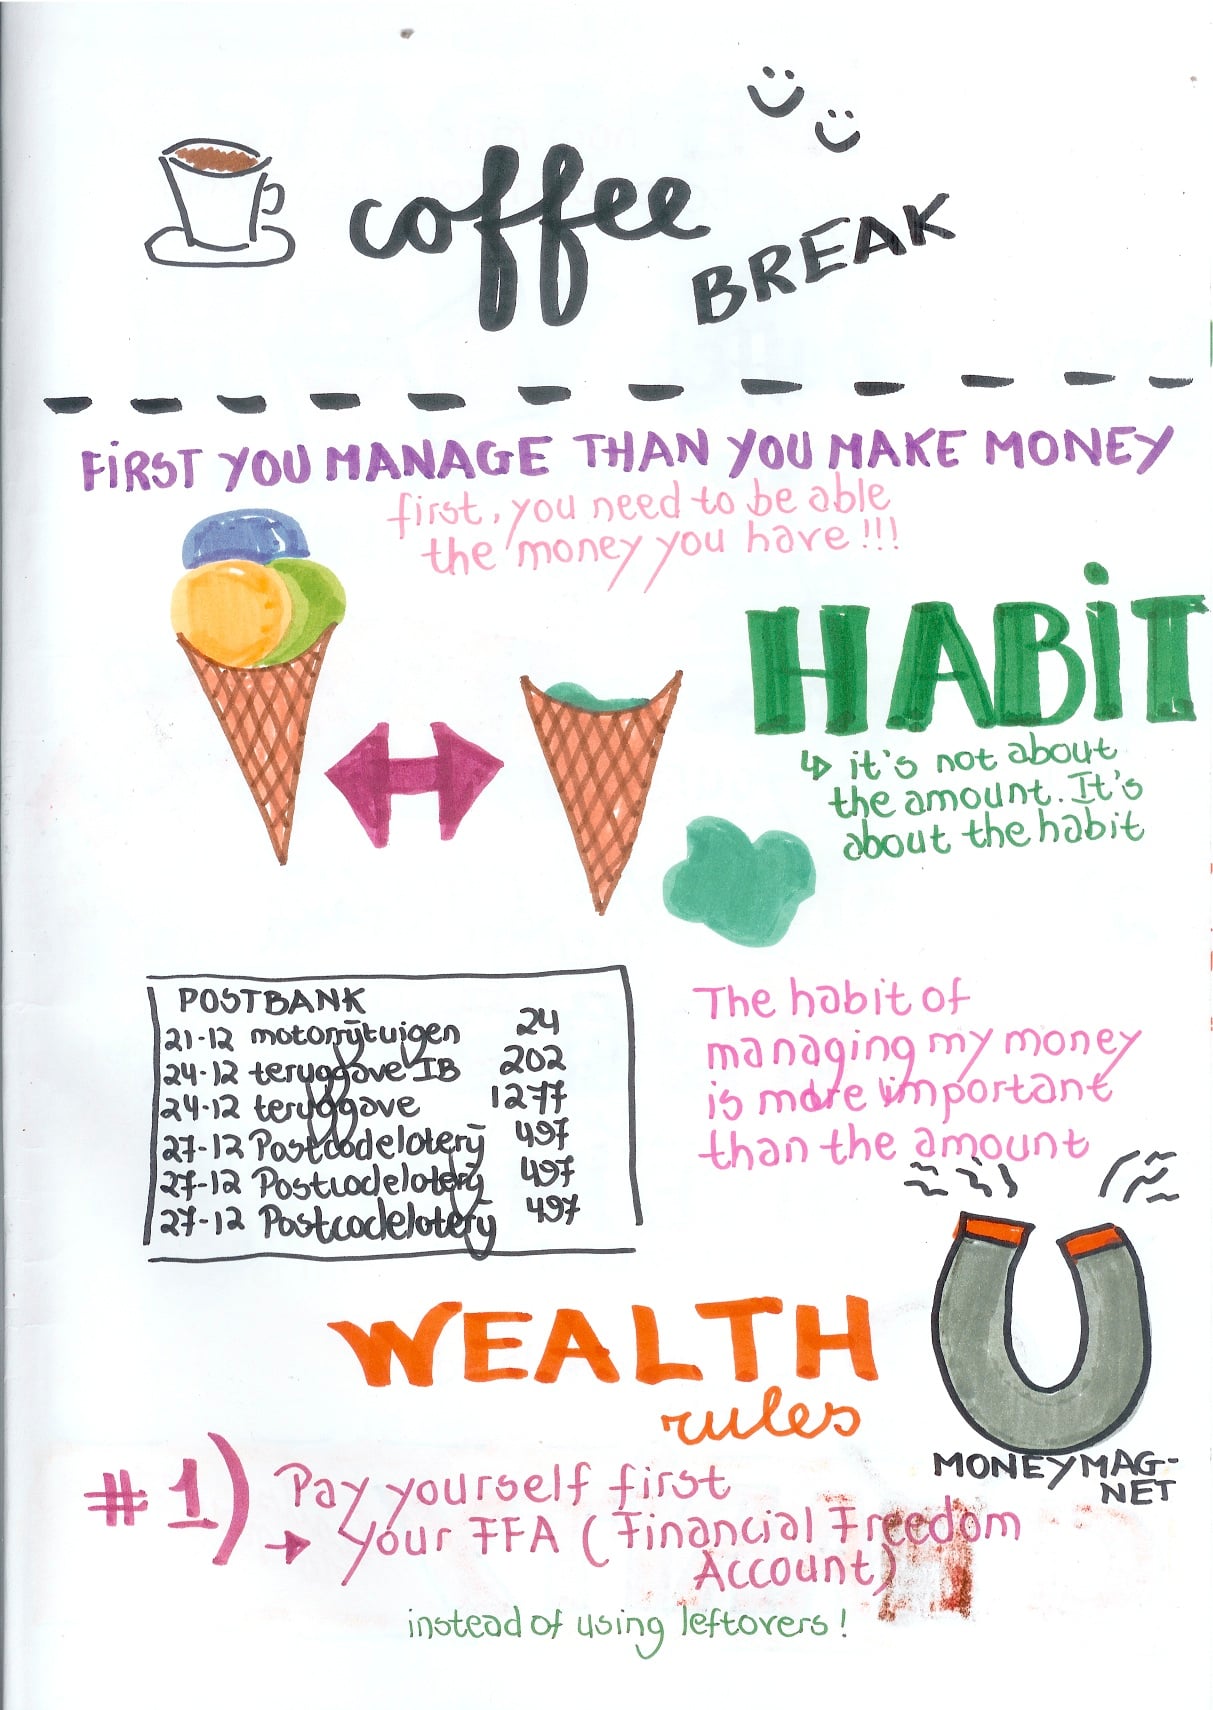 coffee
BREAK
FiRST YOU MANAGE THAN YOU MAKE MONEY
first, you need to be able
the money you have!!!
HABiT
↳ it's not about
the amount. It's
about the habit
POSTBANK
21-12 motorrijtuigen 24
24-12 teruggave IB 202
24-12 teruggave 1277
27-12 Postcodeloterij 497
27-12 Postcodeloterij 497
27-12 Postcodeloterij 497
The habit of
managing my money
is more important
than the amount
WEALTH
rules
MONEYMAG-
NET
#1) Pay yourself first
→ your FFA (Financial Freedom
Account)
instead of using leftovers!